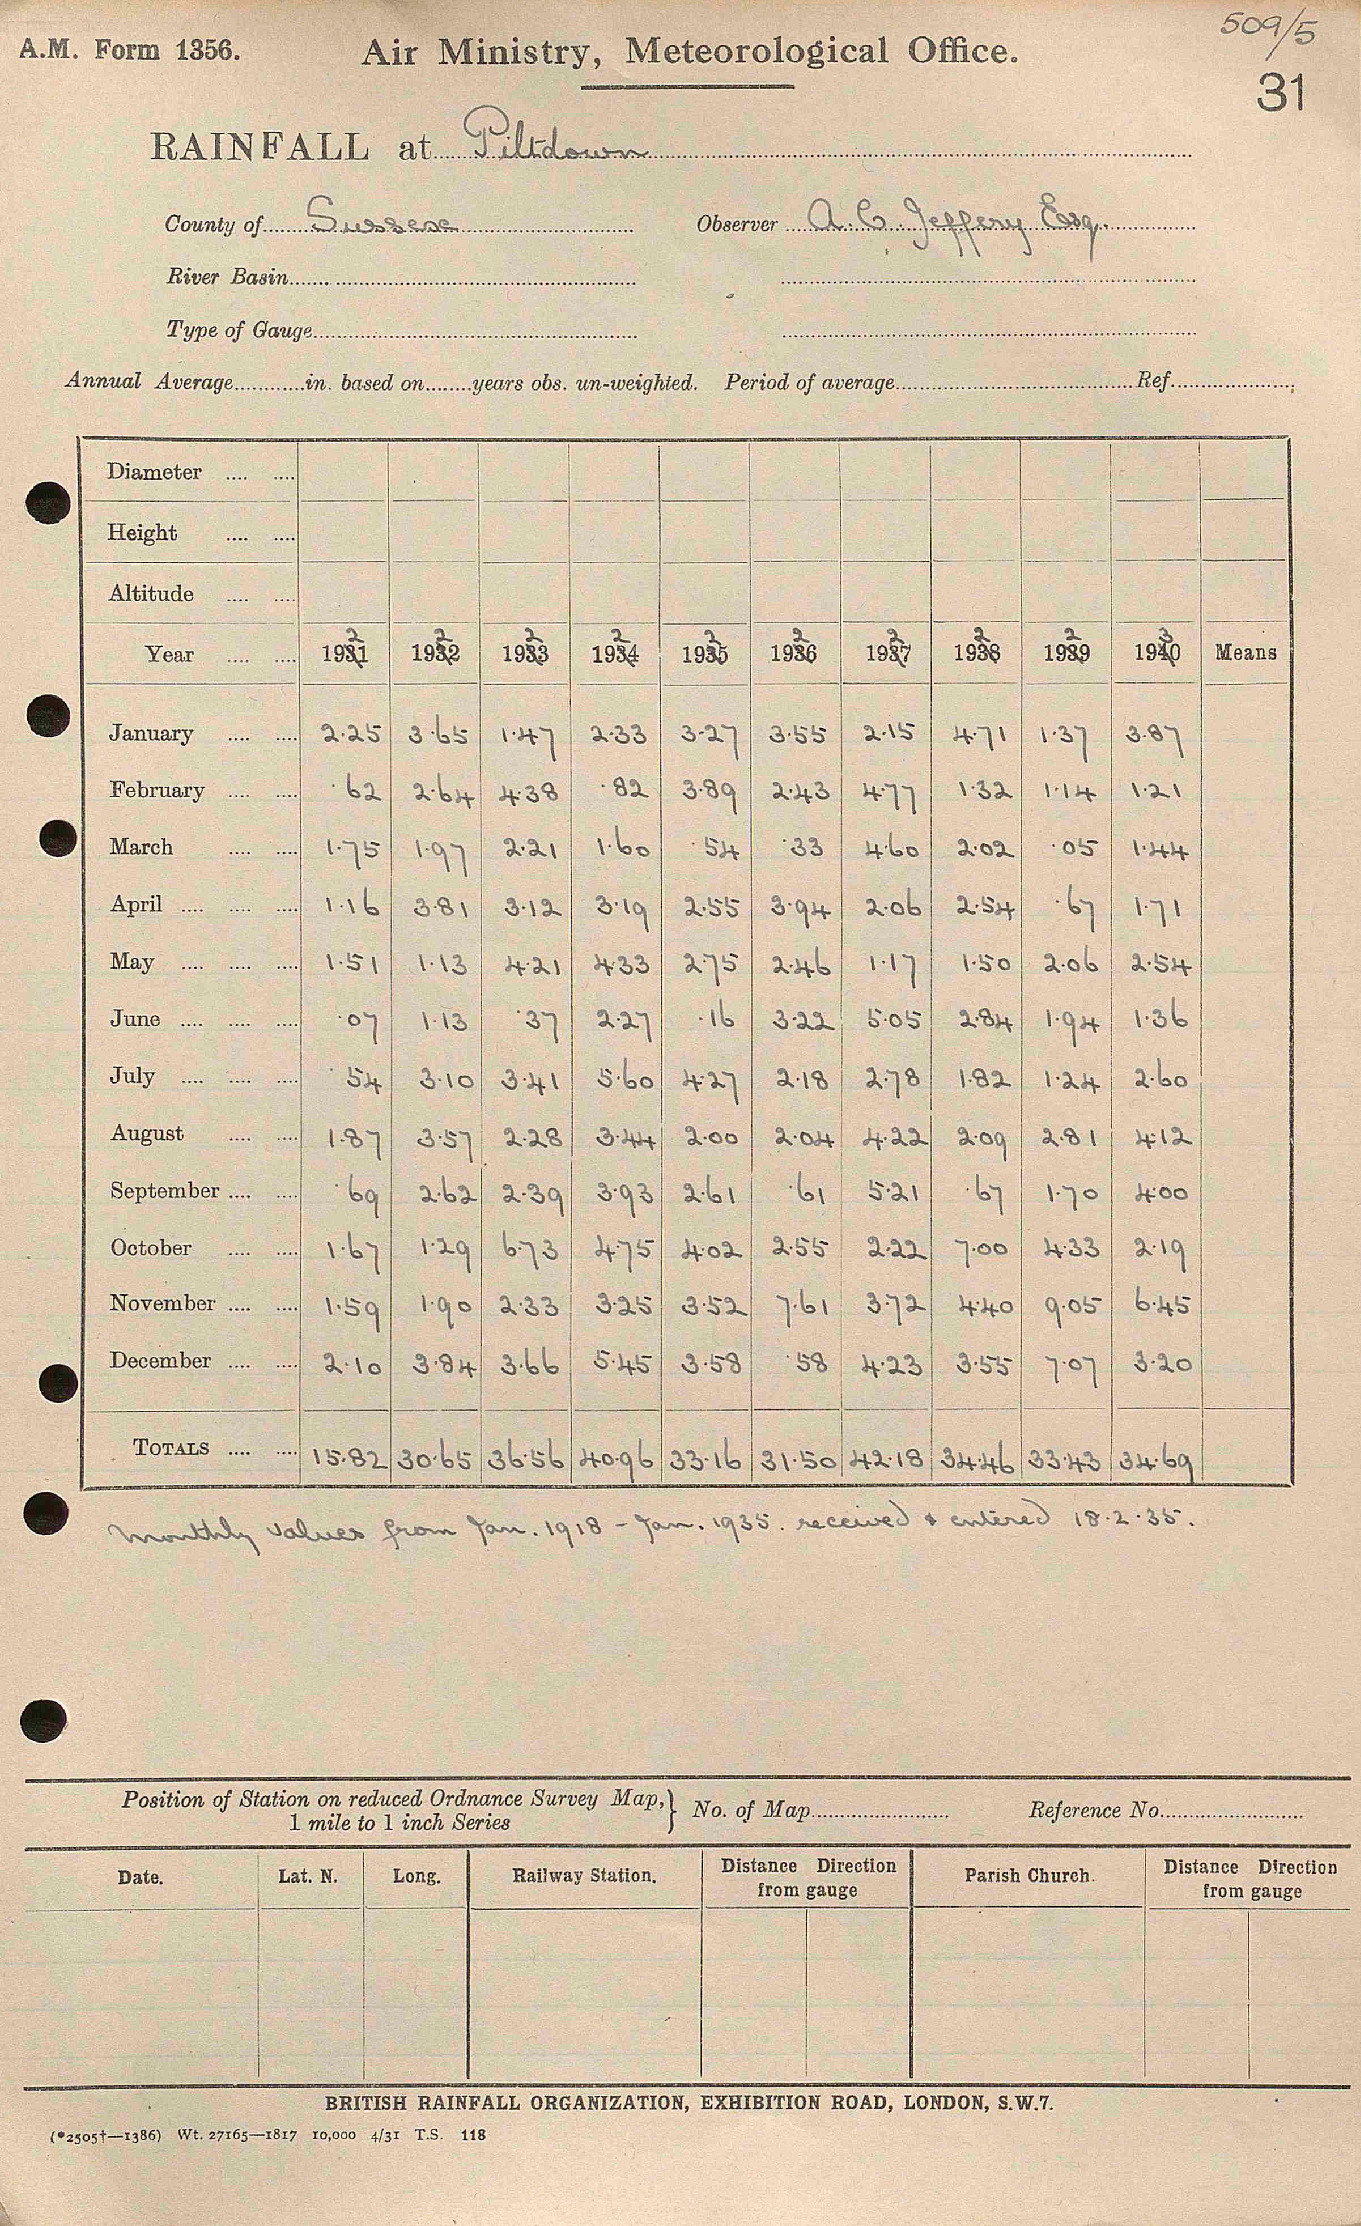 509/5
A.M. Form 1356.
Air Ministry, Meteorological Office.
31
RAINFALL at Piltdown
County of Sussex Observer A. C. Jeffery Esq.
River Basin
Type of Gauge
Annual Average in. based on years obs. un-weighted. Period of average Ref.
Diameter
Height
Altitude
Year 1921 1922 1923 1924 1925 1926 1927 1928 1929 1930 Means
January 2.25 3.65 1.47 2.33 3.27 3.55 2.15 4.71 1.37 3.87
February .62 2.64 4.38 .82 3.89 2.43 4.77 1.32 1.14 1.21
March 1.75 1.97 2.21 1.60 .54 .33 4.60 2.02 .05 1.44
April 1.16 3.81 3.12 3.19 2.55 3.94 2.06 2.54 .67 1.71
May 1.51 1.13 4.21 4.33 2.75 2.46 1.17 1.50 2.06 2.54
June .07 1.13 .37 2.27 .16 3.22 5.05 2.84 1.94 1.36
July .54 3.10 3.41 5.60 4.27 2.18 2.78 1.82 1.24 2.60
August 1.87 3.57 2.28 3.44 2.00 2.04 4.22 2.09 2.81 4.12
September .69 2.62 2.39 3.93 2.61 .61 5.21 .67 1.70 4.00
October 1.67 1.29 6.73 4.75 4.02 2.55 2.22 7.00 4.33 2.19
November 1.59 1.90 2.33 3.25 3.52 7.61 3.72 4.40 9.05 6.45
December 2.10 3.84 3.66 5.45 3.58 .58 4.23 3.55 7.07 3.20
TOTALS 15.82 30.65 36.56 40.96 33.16 31.50 42.18 34.46 33.43 34.69
Monthly values from Jan. 1918 - Jan. 1935. received & entered 18.2.35.
Position of Station on reduced Ordnance Survey Map,} No. of Map Reference No.
1 mile to 1 inch Series
Date. Lat. N. Long. Railway Station. Distance Direction from gauge Parish Church. Distance Direction from gauge
BRITISH RAINFALL ORGANIZATION, EXHIBITION ROAD, LONDON, S.W.7.
(*2505†—1386) Wt. 27165—1817 10,000 4/31 T.S. 118